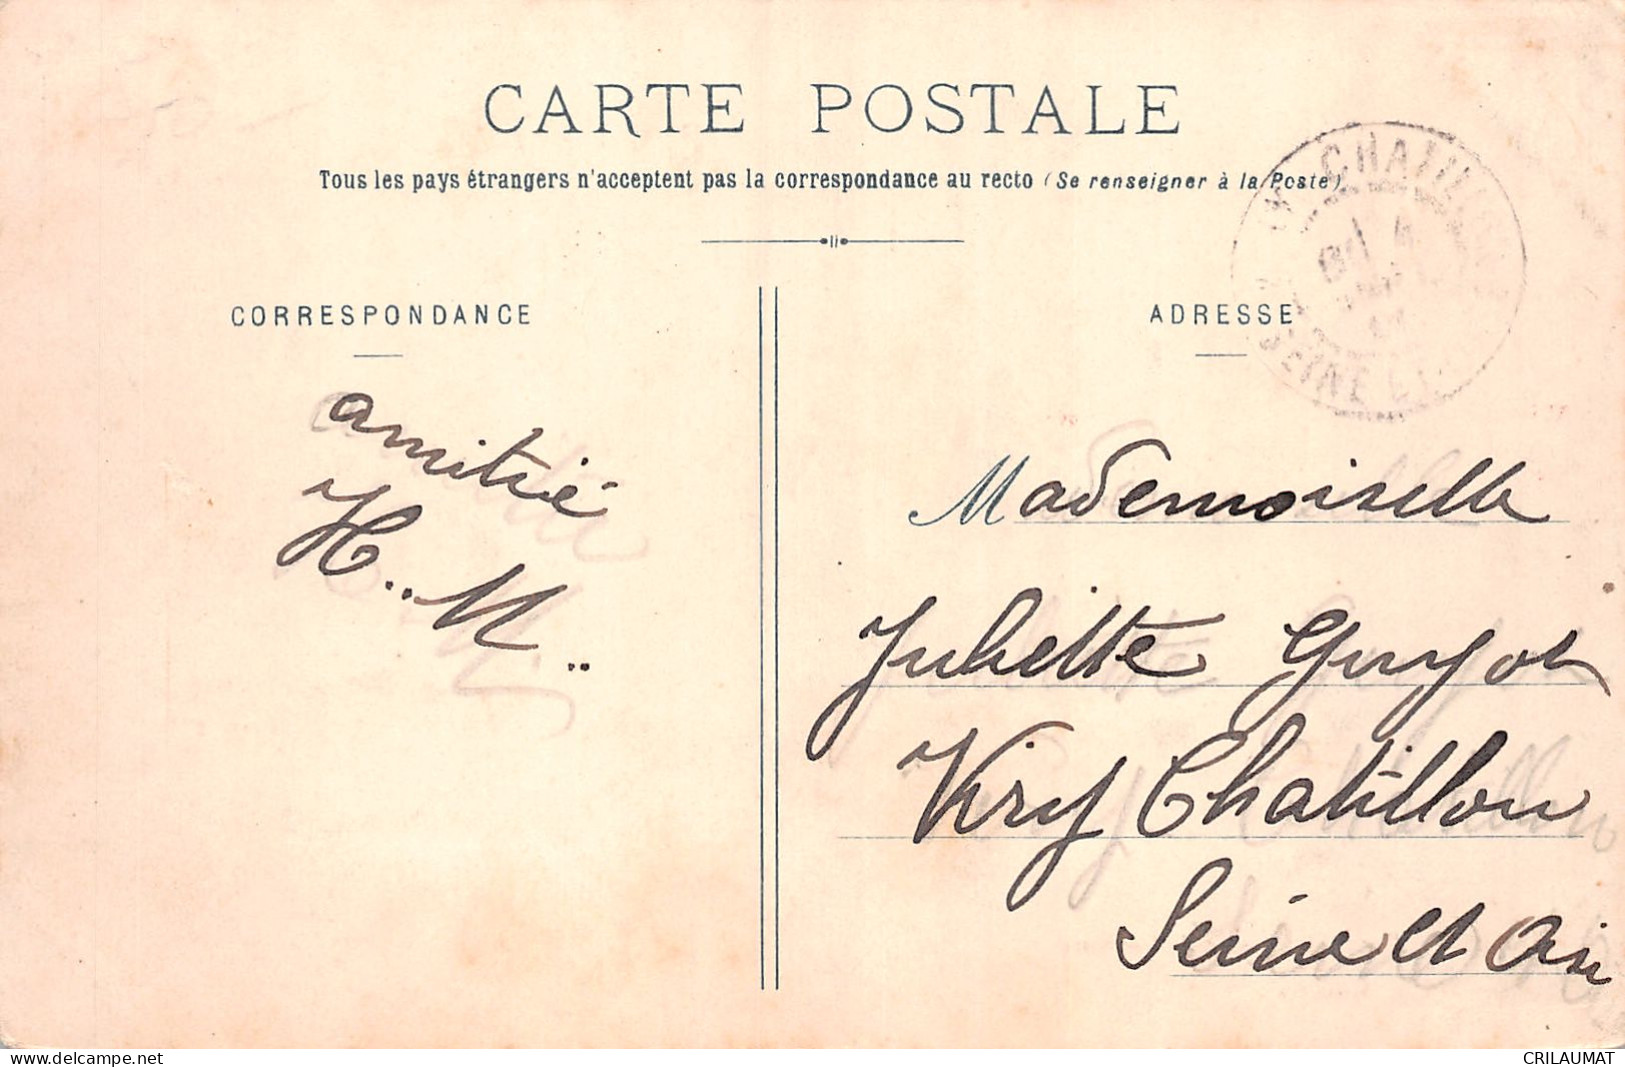 CARTE POSTALE
Tous les pays étrangers n'acceptent pas la correspondance au recto (Se renseigner à la Poste)
CORRESPONDANCE
ADRESSE
amitié
H.. M..
Mademoiselle
Juliette Guyot
Viry Chatillon
Seine et Oise
CHATILLON
SEINE ET
delcampe.net
CRILAUMAT